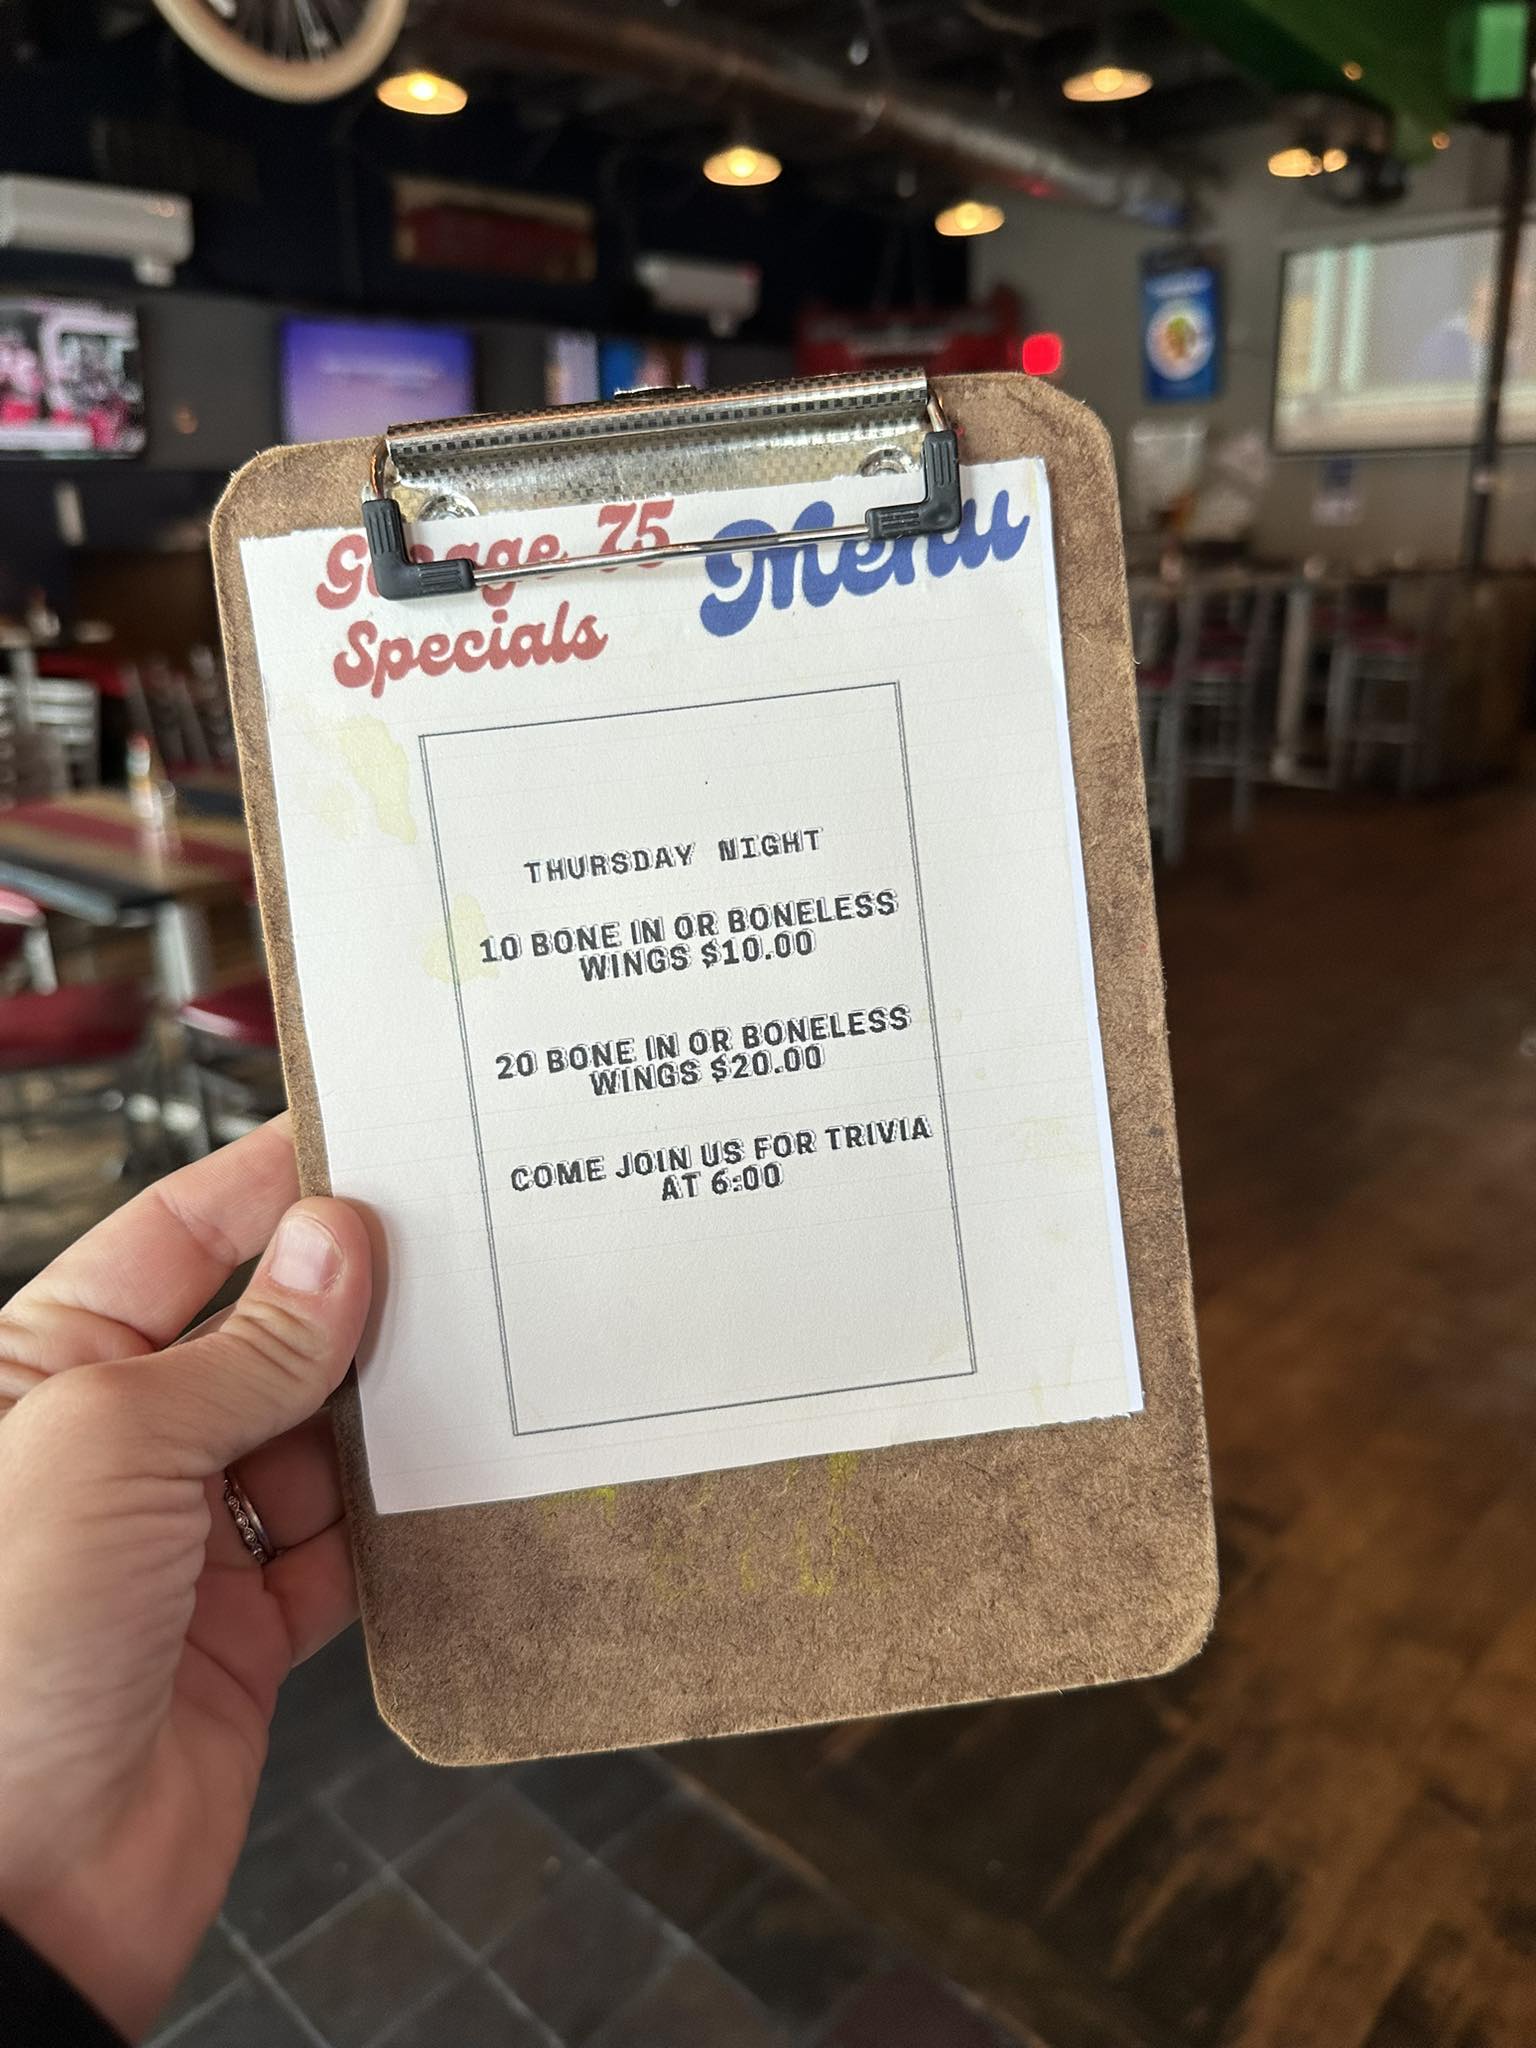 Garage 75 Menu
Specials
THURSDAY NIGHT
10 BONE IN OR BONELESS
WINGS $10.00
20 BONE IN OR BONELESS
WINGS $20.00
COME JOIN US FOR TRIVIA
AT 6:00